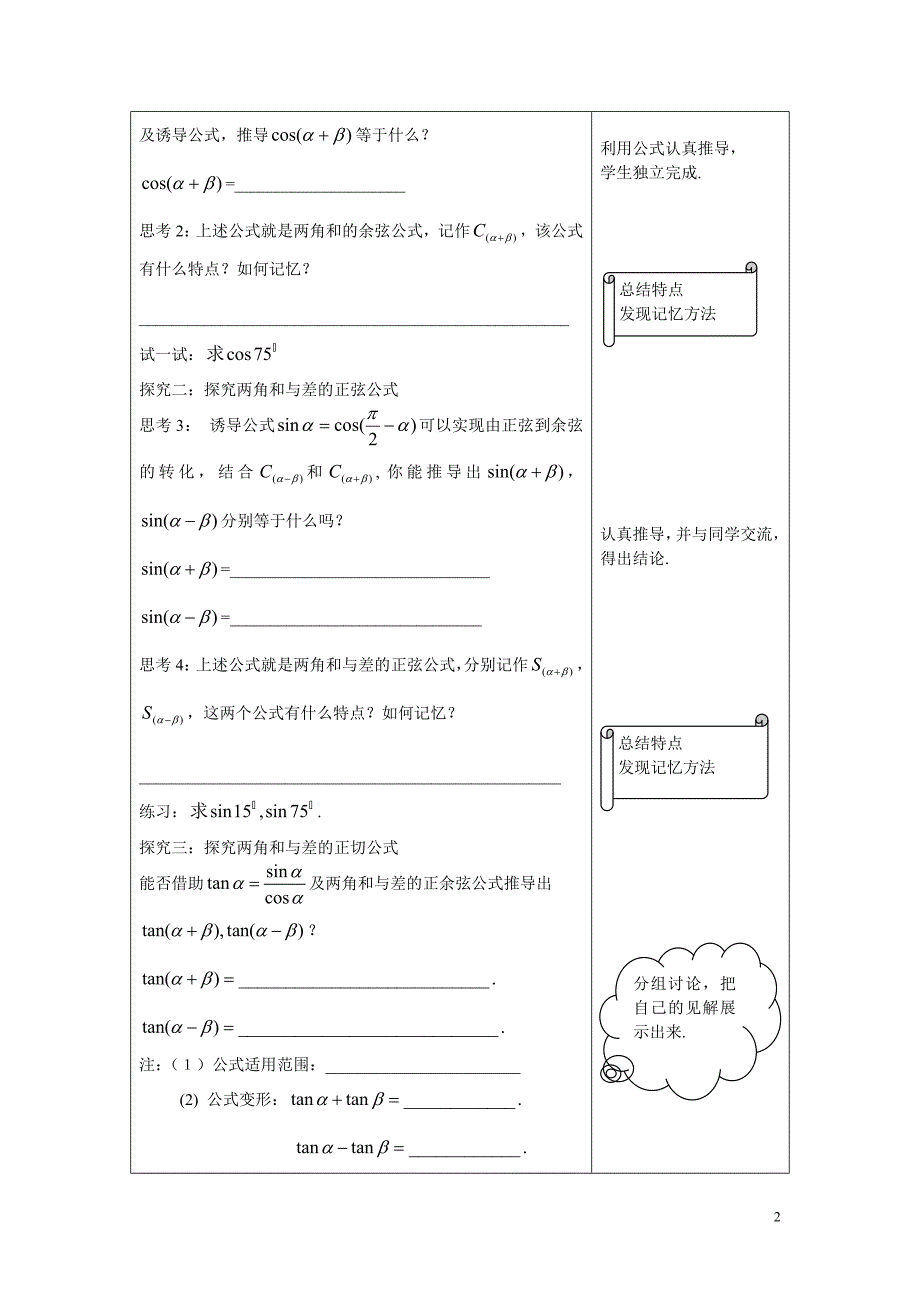 及诱导公式，推导cos(α+β)等于什么？
cos(α+β)=____________________
思考2：上述公式就是两角和的余弦公式，记作C(α+β)，该公式
有什么特点？如何记忆？
__________________________________________________
试一试：求cos75
探究二：探究两角和与差的正弦公式
思考3： 诱导公式sinα=cos(π/2-α)可以实现由正弦到余弦
的转化，结合C(α-β)和C(α+β),你能推导出sin(α+β)，
sin(α-β)分别等于什么吗？
sin(α+β)=______________________________
sin(α-β)=_____________________________
思考4：上述公式就是两角和与差的正弦公式,分别记作S(α+β)，
S(α-β)，这两个公式有什么特点？如何记忆？
_________________________________________________
练习：求sin15,sin75.
探究三：探究两角和与差的正切公式
能否借助tanα=sinα/cosα及两角和与差的正余弦公式推导出
tan(α+β),tan(α-β)？
tan(α+β)=_____________________________.
tan(α-β)=______________________________.
注：（1）公式适用范围：______________________
(2) 公式变形：tanα+tanβ=_____________.
tanα-tanβ=_____________.
利用公式认真推导，
学生独立完成.
总结特点
发现记忆方法
认真推导，并与同学交流，
得出结论.
总结特点
发现记忆方法
分组讨论，把
自己的见解展
示出来.
2